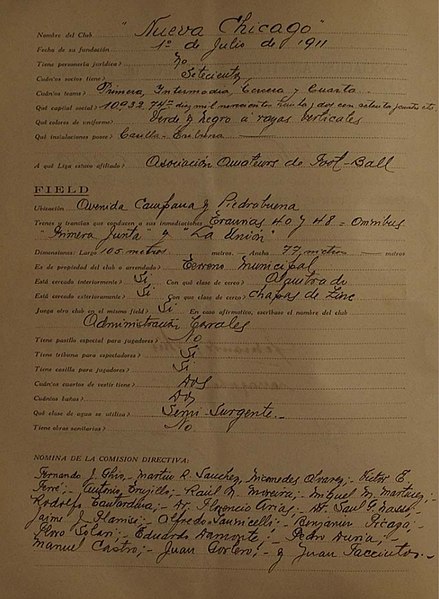 Nombre del Club "Nueva Chicago"
Fecha de su fundación 1º de Julio de 1911
Tiene personería jurídica? No
Cuántos socios tiene? Setecientos
Cuántos teams? Primera, Intermedia, Tercera y Cuarta
Qué capital social? 10932.74
Qué colores de uniforme? Verde y Negro a rayas verticales
Qué instalaciones posee? Casilla - Tribuna
A qué Liga estuvo afiliado? Asociación Amateurs de Foot-Ball
FIELD
Ubicación Avenida Campana y Piedrabuena
Trenes y tranvías que conducen a sus inmediaciones Tranvías 40 y 48 = Omnibus
"Primera Junta" y "La Unión"
Dimensiones: Largo 105 metros metros. Ancho 77 metros metros
Es de propiedad del club o arrendado? Terreno Municipal
Está cercado interiormente? Si Con qué clase de cerco?
Está cercado exteriormente? Si Con que clase de cerco? chapas de Zinc
Juega otro club en el mismo field? Si En caso afirmativo, escríbase el nombre del club
Administración
Tiene pastilla especial para jugadores? No
Tiene tribuna para espectadores? Si
Tiene casilla para jugadores? Si
Cuántos cuartos de vestir tiene? Dos
Cuántos baños? Dos
Qué clase de agua se utiliza? Semi-Surgente.-
Tiene obras sanitarias? No
NOMINA DE LA COMISION DIRECTIVA:
Fernando J. Ghio,- Martín R. Sanchez, Nicomedes Alvarez,- Victor E.
Ferré,- Antonio Trujillo,- Raúl N. Moreira,- Miguel M. Martinez,-
Rodolfo Dr. Florencio Arias,- Dr. Saul
Jaime J. Alfredo Benjamin
Floro Solari,- Eduardo Pedro
Manuel Castro,- Juan y Juan